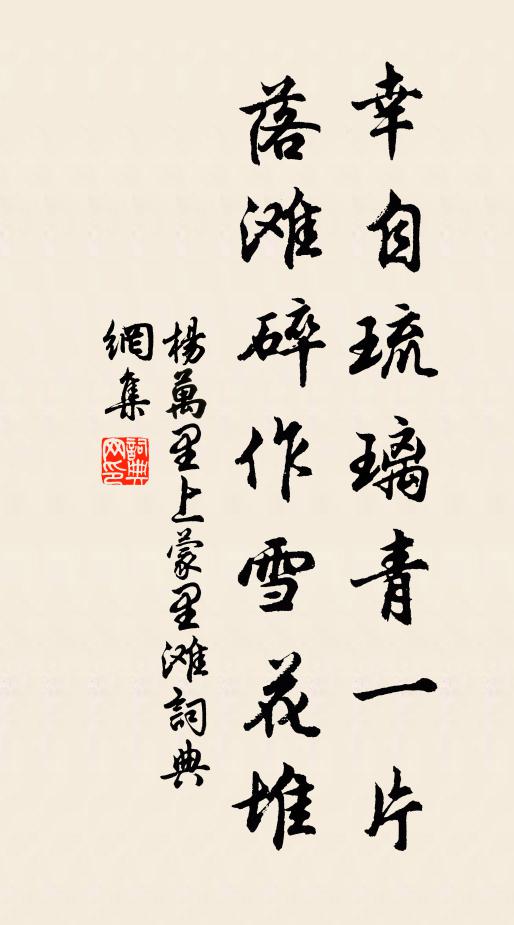 幸自琉璃青一片
落滩碎作雪花堆
楊萬里上蒙里滩詞典
網集
詞典
网印